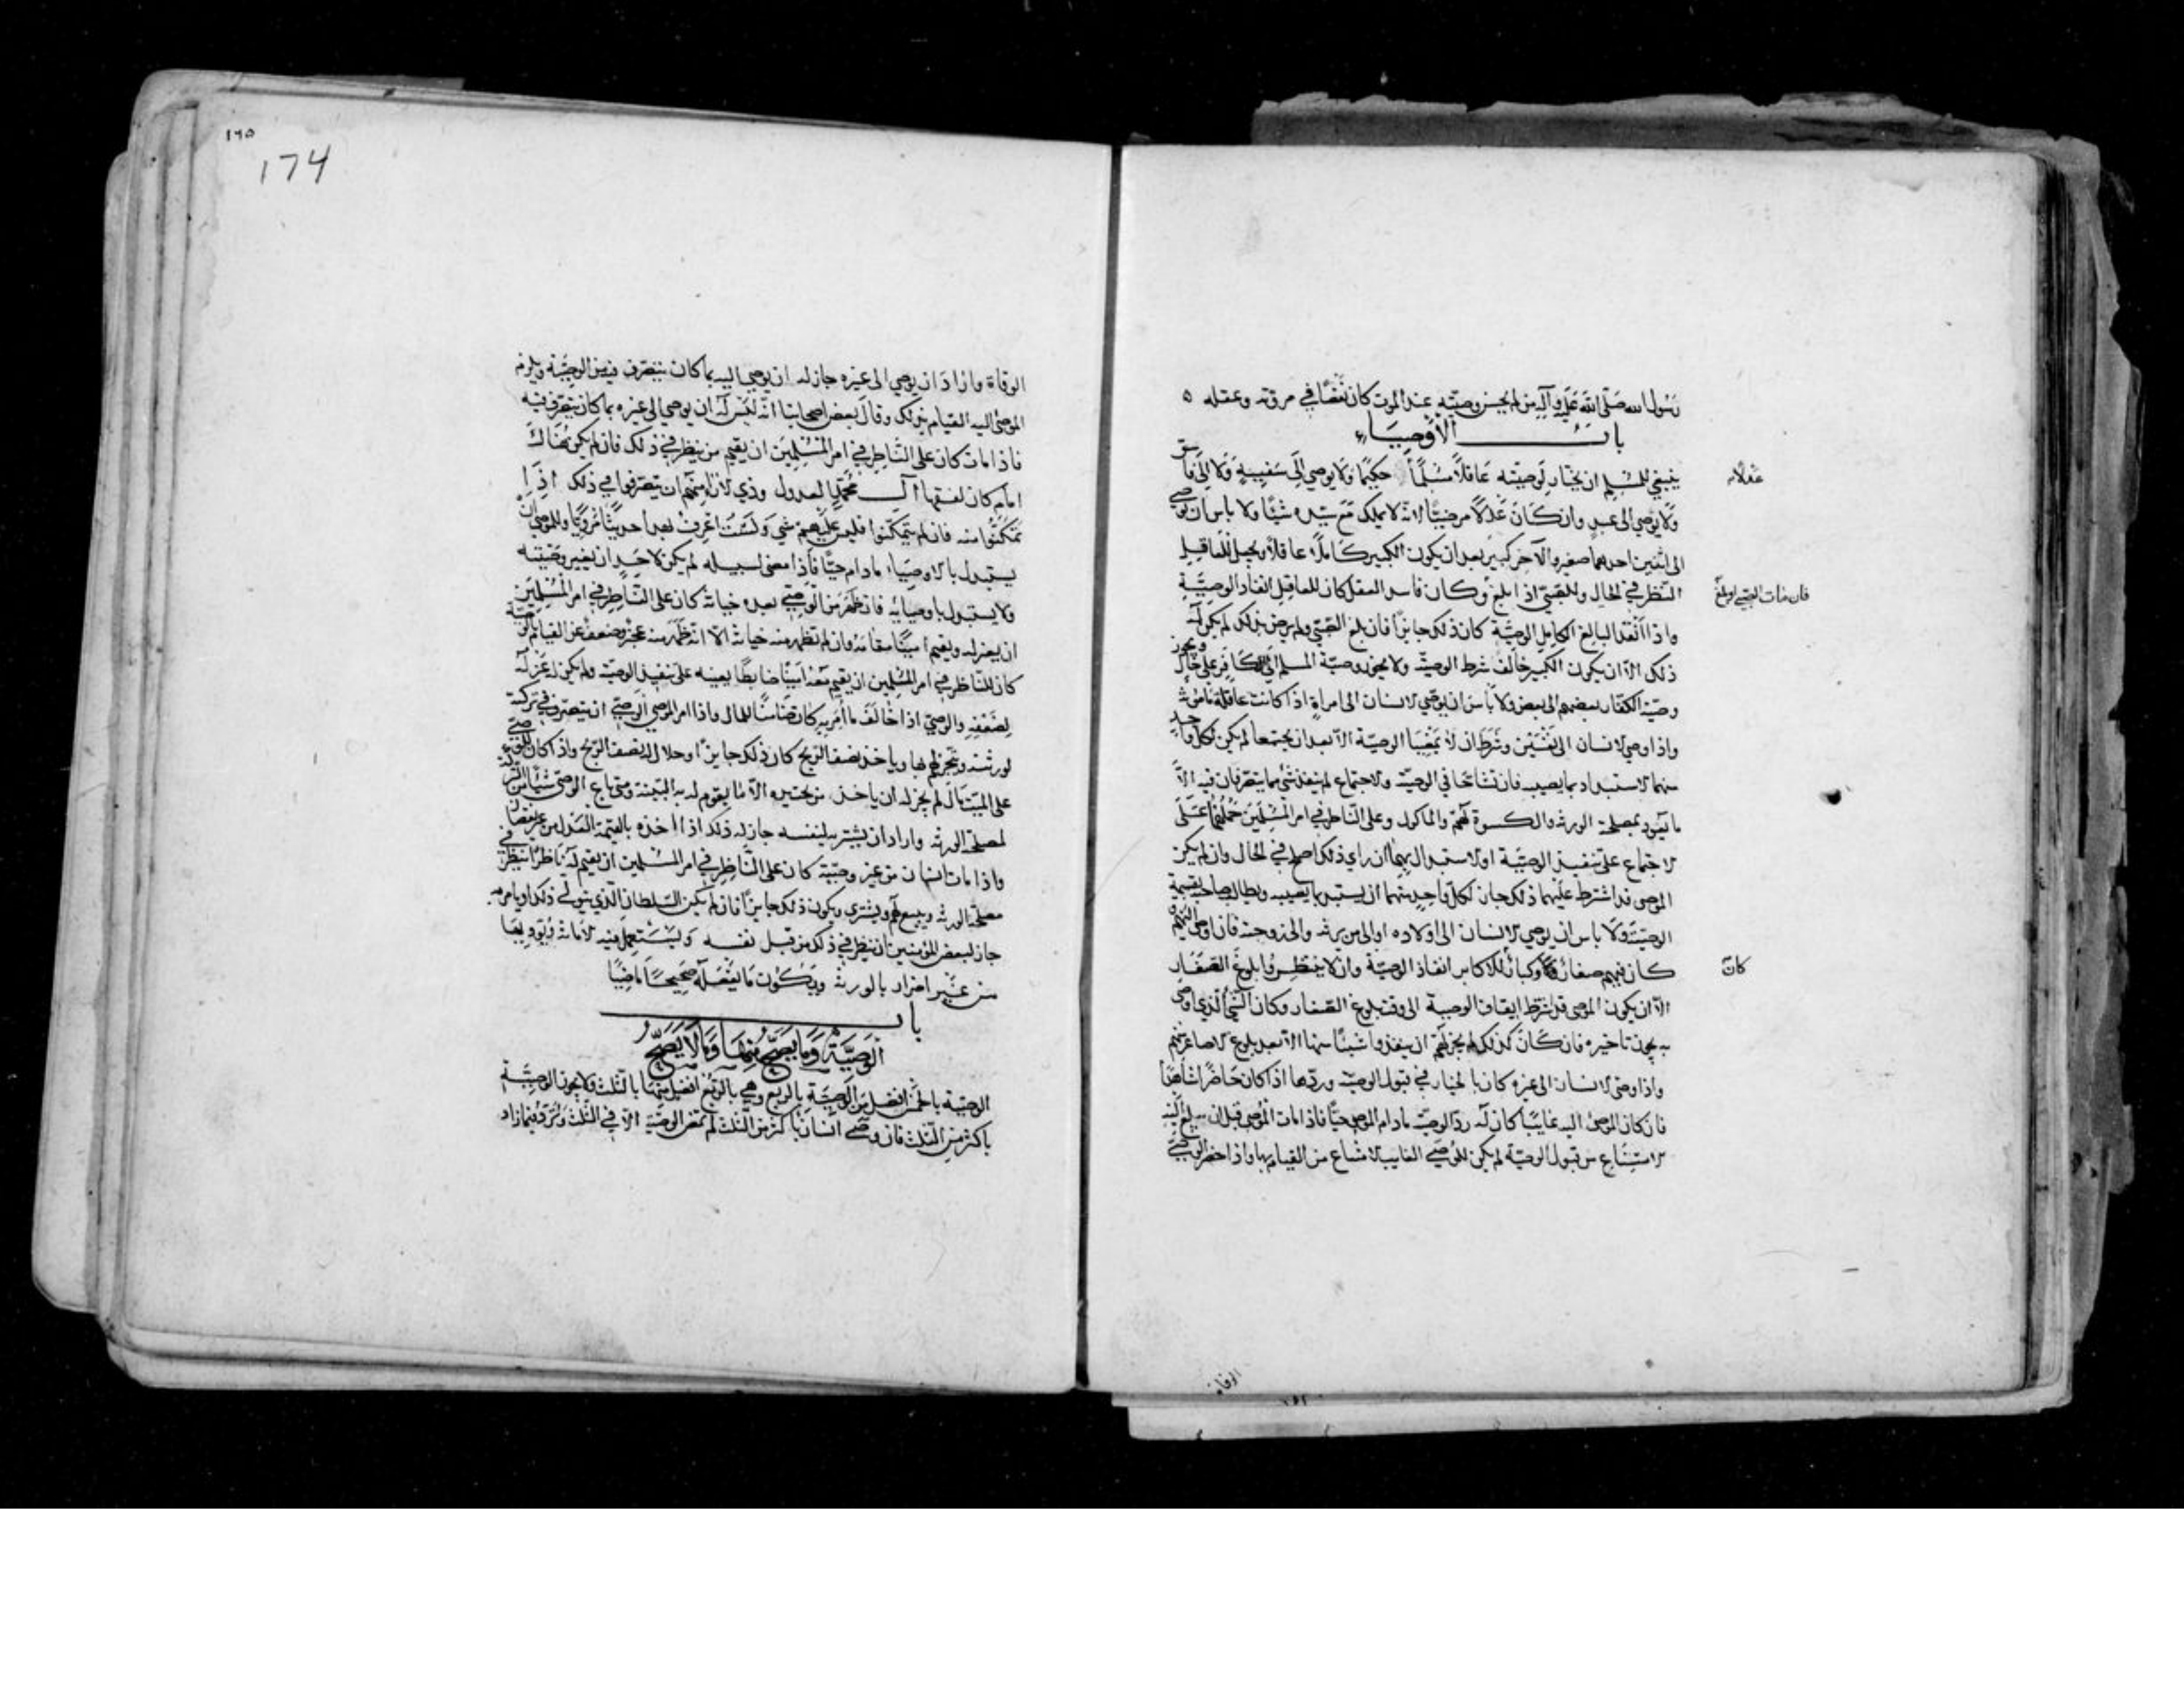 رسول الله صلى الله عليه وآله من لم يحسن وصيته عند الموت كان نقصا في مروته وعقله ٥
باب الأوصياء
ينبغي للمسلم ان يختار لوصيته عاقلا مسلما حكيما ولا يوصي إلى سفيه ولا إلى فاسق
عدلا
ولا يوصي الى عبد وان كان عدلا مرضيا لانه لا يملك مع سيده شيئا ولا باس ان يوصي
الى اثنين احدهما صغير والآخر كبير بعد ان يكون الكبير كاملا عاقلا ويجعل للعاقل
النظر في الحال وللصبي اذا بلغ وكان فاسد العقل كان للعاقل انفاذ الوصية
فان مات الصبي او بلغ
واذا انفذ البالغ الكامل الوصية كان ذلك جايزا فان بلغ الصبي ولم يرض بذلك لم يكن له
ذلك الا ان يكون الكبير خالف شرط الوصية ولا يجوز وصية المسلم الى الكافر على حال ويجوز
وصية الكفار بعضهم الى بعض ولا بأس ان يوصي الانسان الى امراة اذا كانت عاقلة مامونة
واذا وصي الانسان الى نفسين وشرط ان لا يمضيا الوصية الا بعد ان يجتمعا لم يكن لكل واحد
منهما الاستبداد بما يصيبه فان تشاحا في الوصية والاجتماع لم ينفذ شي مما يتصرفان فيه الا
ما يعود بمصلحة الورثة والكسوة لهم والماكول وعلى الناظر في امر المسلمين حملهما على
الاجتماع على تنفيذ الوصية او الاستبدال بهما ان راي ذلك اصلح في الحال وان لم يكن
الموصي قد اشترط عليهما ذلك جاز لكل واحد منهما ان يستبد بما يصيبه ويطالب صاحبه بقسمة
الوصية ولا باس ان يوصي الانسان الى اولاده او الى من يرثه والى زوجته فان اوصى اليهم
كان فيهم صغار وكبار للاكابر انفاذ الوصية وان لا ينتظروا بلوغ الصغار
كان
الا ان يكون الموصي قد اشترط ايقاف الوصية الى وقت بلوغ الصغار وكان الشي الذي اوصى
به يجوز تاخيره فان كان كذلك لم يجز لهم ان ينفذوا شيئا منها الا بعد بلوغ الاصاغر منهم
واذا وصى الانسان الى غيره كان بالخيار في قبول الوصية وردها اذا كان حاضرا شاهدا
فان كان الموصى اليه غايبا كان له رد الوصية مادام الموصي حيا فاذا مات الموصي قبل ان يبلغ اليه
الامتناع من قبول الوصية لم يكن للوصي الغايب الامتناع من القيام بها واذا حضر الوصي
الوفاة
١٦٥
174
الوفاة واراد ان يوصي الى غيره جاز له ان يوصي اليه بما كان يتصرف فيه من الوصية ويلزم
الموصى اليه القيام بذلك وقال بعض اصحابنا انه ليس له ان يوصي الى غيره بما كان يتصرف فيه
فاذا مات كان على الناظر في امر المسلمين ان يقيم من ينظر في ذلك فان لم يكن هناك
امام كان لفقها آل محمد العدول وذوي الاراء منهم ان يتصرفوا في ذلك اذا
تمكنوا منه فان لم يتمكنوا فليس عليهم شي ولست اعرف بهذا حديثا مرويا وللموصي ان
يستبدل بالاوصياء مادام حيا فاذا مضى لسبيله لم يكن لاحد ان يغير وصيته
ولا يستبدل باوصيائه فان ظهر من الوصي بعده خيانة كان على الناظر في امر المسلمين
ان يعزله ويقيم أمينا مقامه وان لم تظهر منه خيانة الا انه ظهر منه عجز وضعف عن القيام بالوصية
كان للناظر في امر المسلمين ان يقيم معه امينا ضابطا يعينه على تنفيذ الوصية ولم يكن له عزله
لضعفه والوصي اذا خالف ما امر به كان ضامنا للمال واذا امر الموصي الوصي ان يتصرف في تركته
لورثته ويتجر لهم بها وياخذ نصف الربح كان ذلك جايزا وحلال له نصف الربح واذا كان للوصي
على الميت مال لم يجز له ان ياخذ من تحت يده الا ما يقوم له به البينة ومتى باع الوصي شيئا من التركة
لمصلحة الورثة واراد ان يشتريه لنفسه جاز له ذلك اذا اخذه بالقيمة العدل من غير نقصان
واذا مات انسان من غير وصية كان على الناظر في امر المسلمين ان يقيم له ناظرا ينظر في
مصلحة الورثة ويبيع لهم ويشتري ويكون ذلك جايزا فان لم يكن السلطان الذي يتولى ذلك او يامر به
جاز لبعض المؤمنين ان ينظر في ذلك من قبل نفسه وليستعمل فيه الامانة ويؤديها
من غير اضرار بالورثة ويكون ما يفعله صحيحا ماضيا
باب
الوصية وما يصح منها وما لا يصح
الوصية بالخمس افضل من الوصية بالربع وهي بالربع افضل منها بالثلث ولا يجوز الوصية
باكثر من الثلث فان وصى انسان باكثر من الثلث لم تمض الوصية الا في الثلث وترد فيما زاد